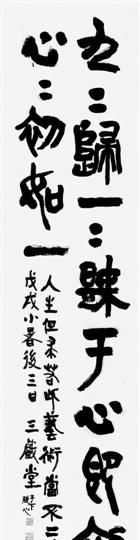 九〻歸一〻于心即
心〻初如一
人生但求藝術當不二
戊戌小暑後三日 三戲堂